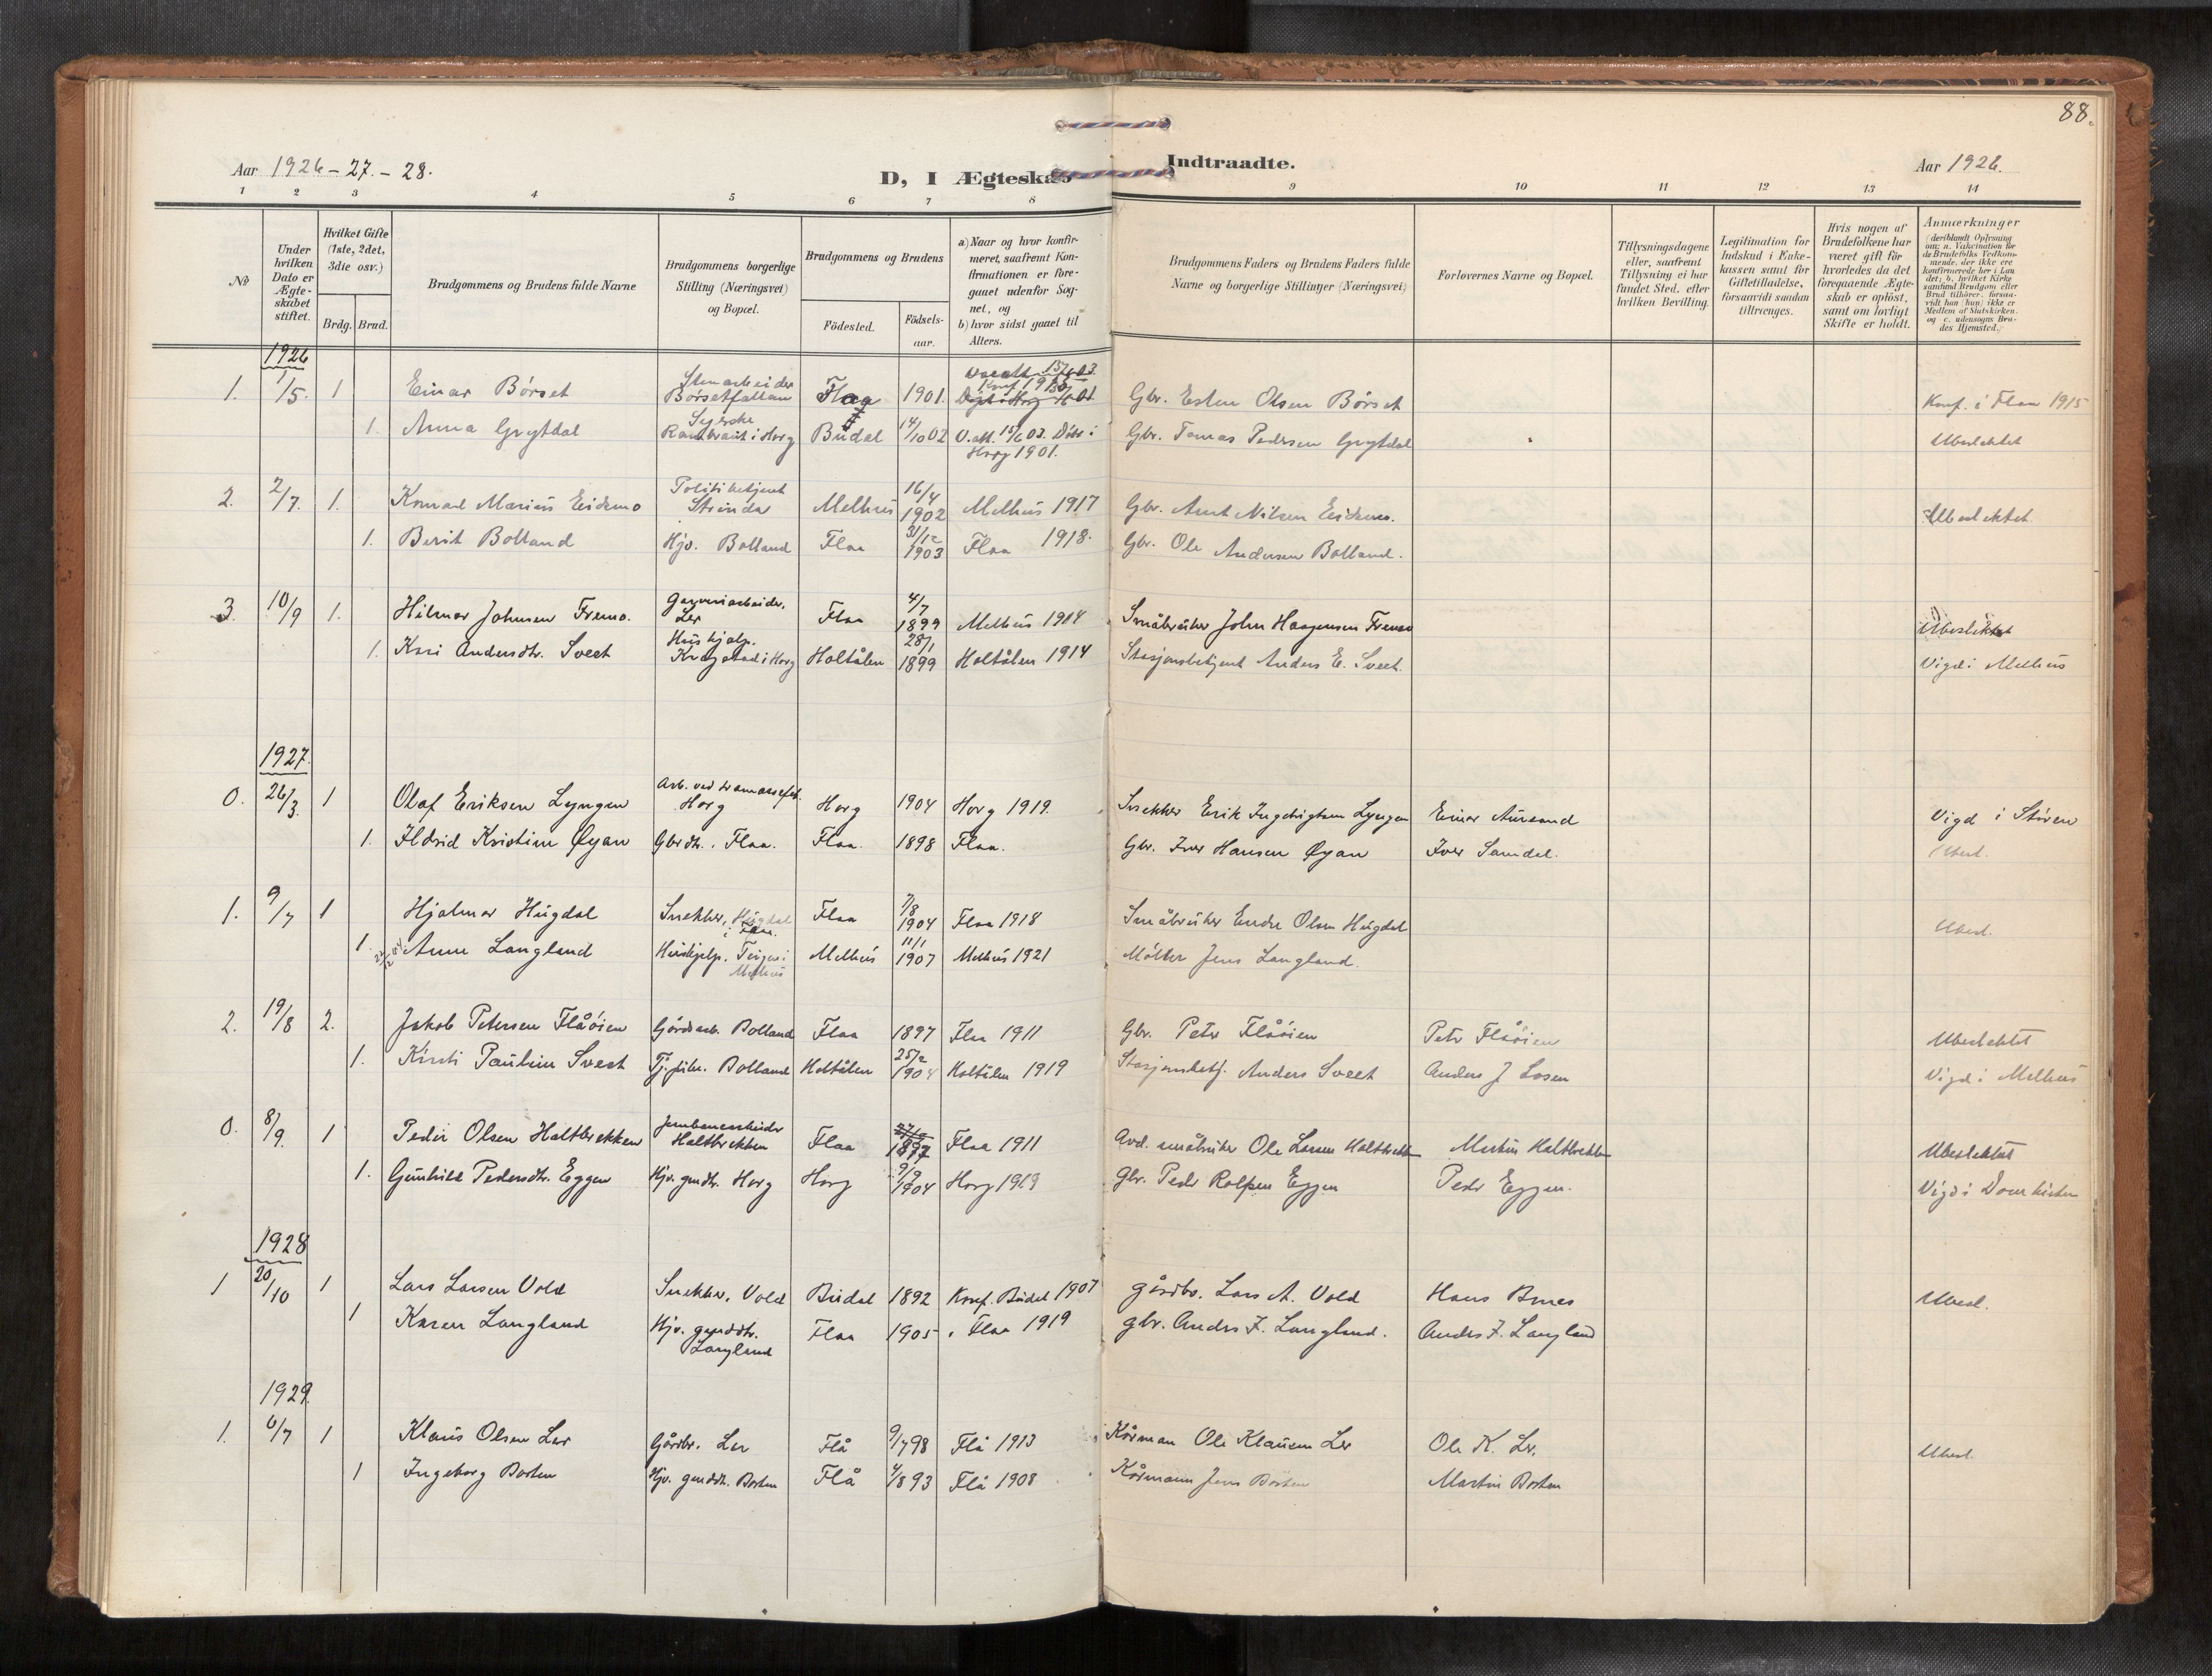 88.
Aar 1926 - 27. - 28.
D, I Ægteskab
Indtraadte.
Aar 1926.
1 2 3 4 5 6 7 8 9 10 11 12 13 14
No
Under hvilken Dato er Ægteskabet stiftet.
Hvilket Gifte (1ste, 2det, 3die osv.)
Brdg. Brud.
Brudgommens og Brudens fulde Navne
Brudgommens borgerlige Stilling (Næringsvei) og Bopæl.
Brudgommens og Brudens
Födested.
Födsels-aar.
a) Naar og hvor konfirmeret, saafremt Konfirmationen er foregaaet udenfor Sognet, og
b) hvor sidst gaaet til Alters.
Brudgommens Faders og Brudens Faders fulde Navne og borgerlige Stillinger (Næringsvei)
Forlovernes Navne og Bopæl.
Tillysningsdagene eller, saafremt Tillysning ei har fundet Sted, efter hvilken Bevilling.
Legitimation for Indskud i Enkekassen samt for Giftetilladelse, forsaavidt saadan tiltrænges.
Hvis nogen af Brudefolkene har været gift för hvorledes da det foregaaende Ægteskab er oplöst, samt om lovligt Skifte er holdt.
Anmærkninger
(deriblandt Oplysning om: a. Vakcination for de Brudefolks Vedkommende, der ikke ere konfirmerede her i Landet; b. hvilket Kirkesamfund Brudgom eller Brud tilhörer, forsaavidt han (hun) ikke er Medlem af Statskirken, og c. udensogns Brudes Hjemsted.)
1926
1. 1/5. 1 Einar Börset Stenarbeider Börsetfallan Flaa 1901. Gbr. Esten Olsen Börset Konf. i Flaa 1915
1. Anna Grytdal Syerske i Horg Budal 14/10 02 V. att. 15/6 03. Döbt i Horg 1901. Gbr. Tomas Pedersen Grytdal Ubeslektet
2. 2/7. 1. Konrad Marius Eidsmo Politibetjent Strinda Melhus 16/4 1902 Melhus 1917 Gbr. Arnt Nilsen Eidsmo. Ubeslektet
1. Berit Bolland Hjv. Bolland Flaa 31/12 1903 Flaa 1918. Gbr. Ole Andersen Bolland.
3. 10/9 1. Hilmar Johnsen Fremo. Garveriarbeider, Ler Flaa 4/7 1899 Melhus 1914 Småbruker John Haagensen Fremo Ubeslektet
1. Kari Andersdtr. Sveet Hushjelp. Krogstad i Horg Holtålen 28/1 1899 Holtålen 1914 Stasjonsbetjent Anders E. Sveet. Vigd i Melhus
1927.
0. 26/3. 1 Olaf Eriksen Lyngen Arb. ved tramassefab. Horg Horg 1904 Horg 1919. Snekker Erik Ingebrigtsen Lyngen Einar Aunsand Vigd i Stören
1. Ildrid Kristine Øyan Gbrdtr. Flaa. Flaa. 1898 Flaa. Gbr. Iver Hansen Øyan Iver Samdal. Ubesl.
1. 9/7 1 Hjalmar Hugdal Snekker, Hugdal i Flaa. Flaa 7/8 1904 Flaa 1918 Småbruker Endre Olsen Hugdal Ubesl.
1. Anne Langland Hushjelp. Teigen i Melhus Melhus 11/1 1907 Melhus 1921 Möller Jens Langland.
2. 19/8 2. Jakob Petersen Flåöien Gårdsarb. Bolland Flaa 1897 Flaa 1911 Gbr. Peter Flåöien Peter Flåöien Ubeslektet
1. Kirsti Pauline Sveet Tj.pike. Bolland Holtålen 25/2 1904 Holtålen 1919 Stasjonsbetj. Anders Sveet Anders J Losen Vigd i Melhus
0. 8/9. 1 Peder Olsen Haltbrekken Jernbanearbeider Haltbrekken Flaa 1897 Flaa 1911 Avd. småbruker Ole Larsen Haltbrekken Martin Haltbrekken Ubeslektet
1. Gunhild Pedersdtr. Eggen Hjv. grdtr. Horg Horg 9/9 1904 Horg 1919 Gbr. Peder Rolfsen Eggen Peder Eggen. Vigd i Domkirken
1928
1 20/10 1 Lars Larsen Vold Snekker, Vold Budal 1892 Konf. Budal 1907 gårdbr. Lars A. Vold Hans Bones Ubesl.
1 Karen Langland Hjv. grddtr. Langland Flaa 1905 Flaa 1919 gbr. Anders J. Langland. Anders J. Langland
1929.
1. 6/7 1 Klaus Olsen Ler Gårdbr. Ler Flå 9/7 98 Flå 1913 Kårman Ole Klausen Ler Ole K. Ler. Ubesl.
1 Ingeborg Borten Hjv. grddtr. Borten Flå 4/8 93 Flå 1908 Kårmann Jens Borten Martin Borten